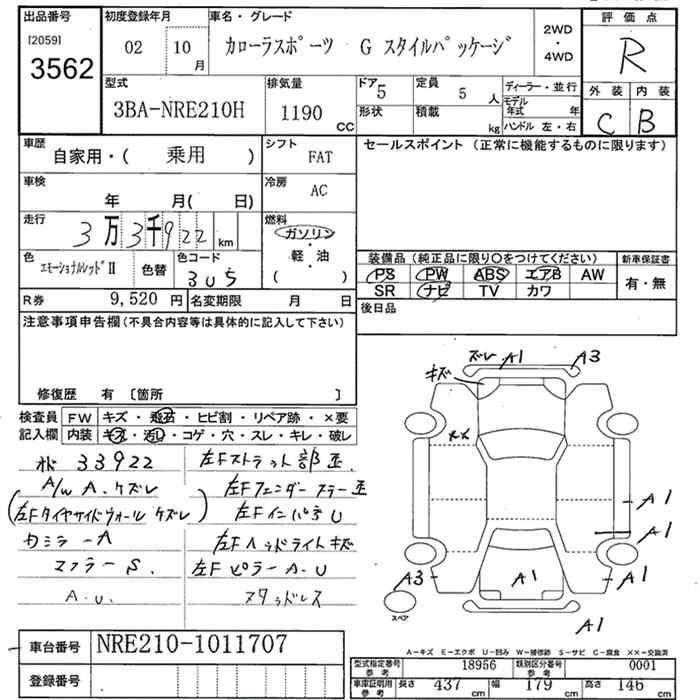 出品番号
[2059]
3562
初度登録年月
02
10
月
車名・グレード
カローラスポーツ G スタイルパッケージ
2WD
・
4WD
評価点
R
外装 内装
C B
型式
3BA-NRE210H
排気量
1190
CC
ドア
5
形状
定員
5
人
積載
kg
ディーラー・並行
モデル
年式
年
ハンドル 左・右
車歴
自家用・( 乗用 )
シフト
FAT
セールスポイント (正常に機能するものに限ります)
車検
年 月( 日)
冷房
AC
走行
3万3千922
km
燃料
ガソリン
・
軽油
( )
色
エモーショナルレッドⅡ
色替
色コード
3U5
装備品 (純正品に限り○をつけてください)
新車保証書
PS PW ABS エアB AW
有・無
SR ナビ TV カワ
R券
9,520 円
名変期限
月 日
後日品
注意事項申告欄(不具合内容等は具体的に記入して下さい)
修復歴 有 〔箇所 〕
検査員
記入欄
FW
キズ・飛石・ヒビ割・リペア跡・×要
内装
キズ・汚れ・コゲ・穴・スレ・キレ・破レ
33922
左Fストラット部歪
A/W A.ケズレ
左Fフェンダーステー歪
(左Fタイヤサイドウォール ケズレ)
左Fインパネ U
カミラーA
左Fヘッドライトキズ
マフラー S.
左Fピラー A.U
A.U.
スタッドレス
ズレ
A1
A3
キズ
××
A1
A1
A3
A1
A1
A1
スペア
A-キズ E-エクボ U-凹み W-補修跡 S-サビ C-腐食 ××-交換済
車台番号
NRE210-1011707
登録番号
型式指定番号
参考
18956
類別区分番号
参考
0001
車庫証明用
参考
長さ 437 cm
幅 179 cm
高さ 146 cm